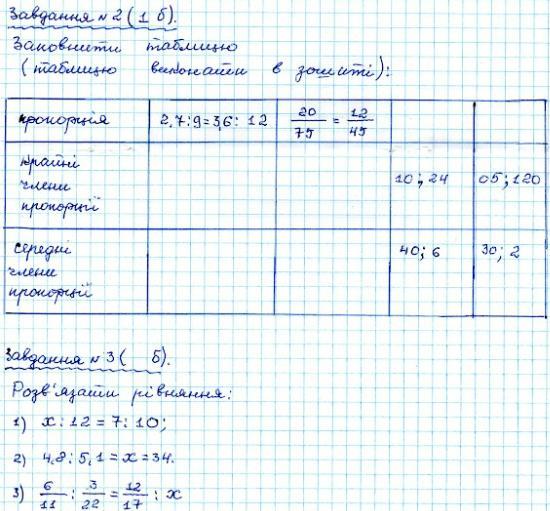 Завдання №2 (1 б).
Заповнити таблицю
(таблицю виконати в зошиті):
пропорція 2,7:9=3,6:12 20/75 = 12/45
крайні члени пропорції 10; 24 05; 120
середні члени пропорції 40; 6 30; 2
Завдання №3 ( б).
Розв'язати рівняння:
1) x : 12 = 7 : 10;
2) 4,8 : 5,1 = x = 34.
3) 6/11 : 3/22 = 12/17 : x